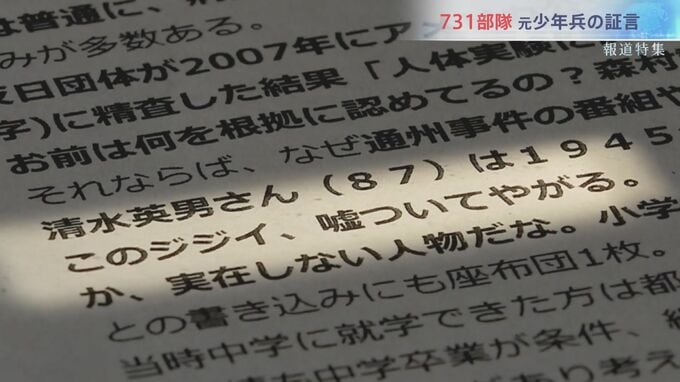 731部隊 元少年兵の証言
報道特集
は普通に、
みが多数ある。
反日団体が2007年にア
字)に精査した結果「人体実験に
お前は何を根拠に認めてるの？森村
それならば、なぜ通州事件の番組や
清水英男さん（８７）は１９４５
このジジイ、嘘ついてやがる。
か、実在しない人物だな。小学
との書き込みにも座布団1枚。
当時中学に就学できた方は都
中学卒業が条件、